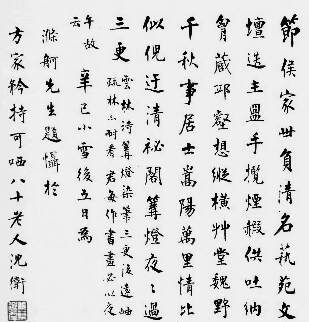 節侯家世負清名藝苑文
壇迭主盟手攬煙霞供吐納
胸藏邱壑想縱橫艸堂魏野
千秋事居士嵩陽萬里情比
似倪迂清祕閣篝燈夜夜過
三更雲林詩篝燈染筆三更後遠岫
疏林亦耐看君每作書畫必以夜
午故
云 辛巳小雪後五日為
滌舸先生題懾於
方家矜持可哂八十老人沈衛